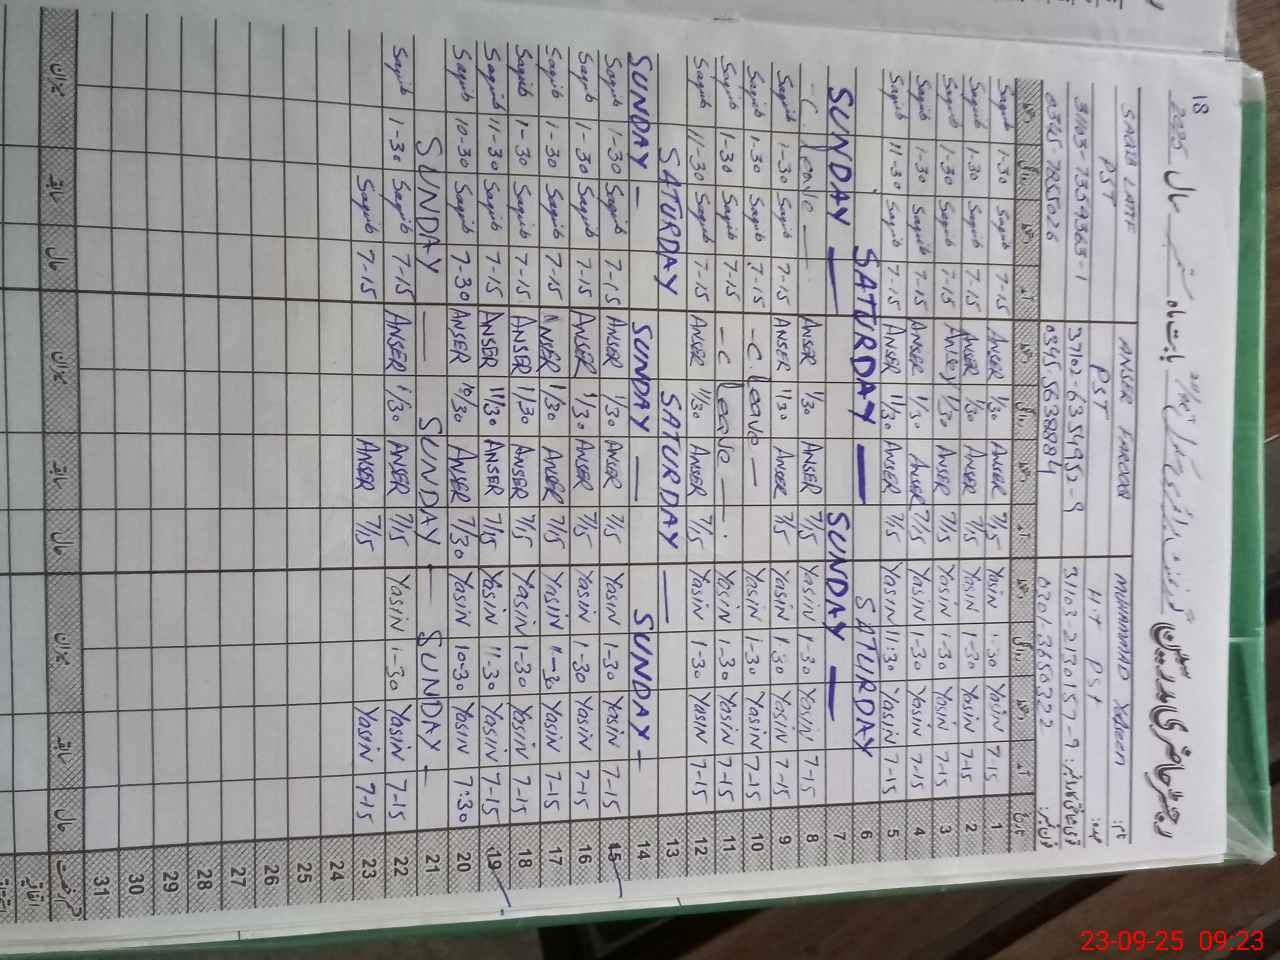 18
رجسٹر حاضری
بابت ماہ ستمبر سال 2025
SAQIB LATIF ANSER FAROOQ MUHAMMAD Yaseen نام:
PST PST H.T PST عہدہ:
31103-7359363-1 37102-6354952-9 31103-2130157-9
0345 7855026 0345 5638884 0301-3650322 فون نمبر:
Saqib 1-30 Saqib 7-15 ANSER 1/30 ANSER 7/15 Yasin 1-30 Yasin 7-15 1
Saqib 1-30 Saqib 7-15 ANSER 1/30 ANSER 7/15 Yasin 1-30 Yasin 7-15 2
Saqib 1-30 Saqib 7-15 1/30 ANSER 7/15 Yasin 1-30 Yasin 7-15 3
Saqib 1-30 Saqib 7-15 ANSER 1/30 ANSER 7/15 Yasin 1-30 Yasin 7-15 4
Saqib 11-30 Saqib 7-15 ANSER 11/30 ANSER 7/15 Yasin 11:30 Yasin 7-15 5
SATURDAY — SATURDAY 6
SUNDAY — SUNDAY — 7
-C. leave — ANSER 1/30 ANSER 7/15 Yasin 1-30 Yasin 7-15 8
Saqib 1-30 Saqib 7-15 ANSER 1/30 ANSER 7/15 Yasin 1-30 Yasin 7-15 9
Saqib 1-30 Saqib 7-15 -C. leave — Yasin 1-30 Yasin 7-15 10
Saqib 1-30 Saqib 7-15 -C leave — Yasin 1-30 Yasin 7-15 11
Saqib 11-30 Saqib 7-15 ANSER 11/30 ANSER 7/15 Yasin 1-30 Yasin 7-15 12
SATURDAY SATURDAY — 13
SUNDAY — SUNDAY — SUNDAY — 14
Saqib 1-30 Saqib 7-15 ANSER 1/30 ANSER 7/15 Yasin 1-30 Yasin 7-15 15
Saqib 1-30 Saqib 7-15 ANSER 1/30 ANSER 7/15 Yasin 1-30 Yasin 7-15 16
Saqib 1-30 Saqib 7-15 ANSER 1/30 ANSER 7/15 Yasin 1-30 Yasin 7-15 17
Saqib 1-30 Saqib 7-15 ANSER 1/30 ANSER 7/15 Yasin 1-30 Yasin 7-15 18
Saqib 11-30 Saqib 7-15 ANSER 11/30 ANSER 7/15 Yasin 11-30 Yasin 7-15 19
Saqib 10-30 Saqib 7-30 ANSER 10/30 ANSER 7/30 Yasin 10-30 Yasin 7:30 20
SUNDAY — SUNDAY — SUNDAY — 21
Saqib 1-30 Saqib 7-15 ANSER 1/30 ANSER 7/15 Yasin 1-30 Yasin 7-15 22
Saqib 7-15 ANSER 7/15 Yasin 7-15 23
24
25
26
27
28
29
30
31
میزان سابقہ حال میزان سابقہ حال میزان سابقہ حال
23-09-25 09:23